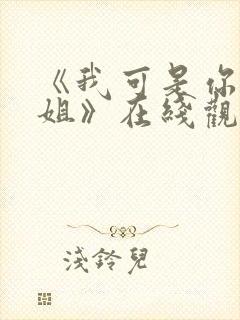 《我可是你
姐》在綫觀
淺鈴兒